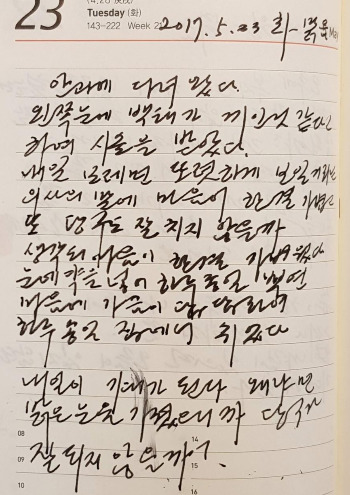 23
Tuesday (화)
143–222 Week 2
2017. 5. 23 화- 맑음
안과에 다녀 왔다.
왼쪽눈에 백태가 끼인것 같다고
하며 시술을 받았다.
내일 모레면 또렷하게 보일거라는
의사의 말에 마음이 한결 가볍고
또 당구도 잘 치지 않을까
생각되 마음이 한결 가벼웠다
눈에 약을 넣어 하루종일 뿌연
때문에 가슴이 답답하여
하루 종일 집에서 쉬었다
내일이 기대가 된다 왜냐면
맑은 눈을 가졌으니까 당구가
잘 되지 않을까?.
08
09
10
14
15
16